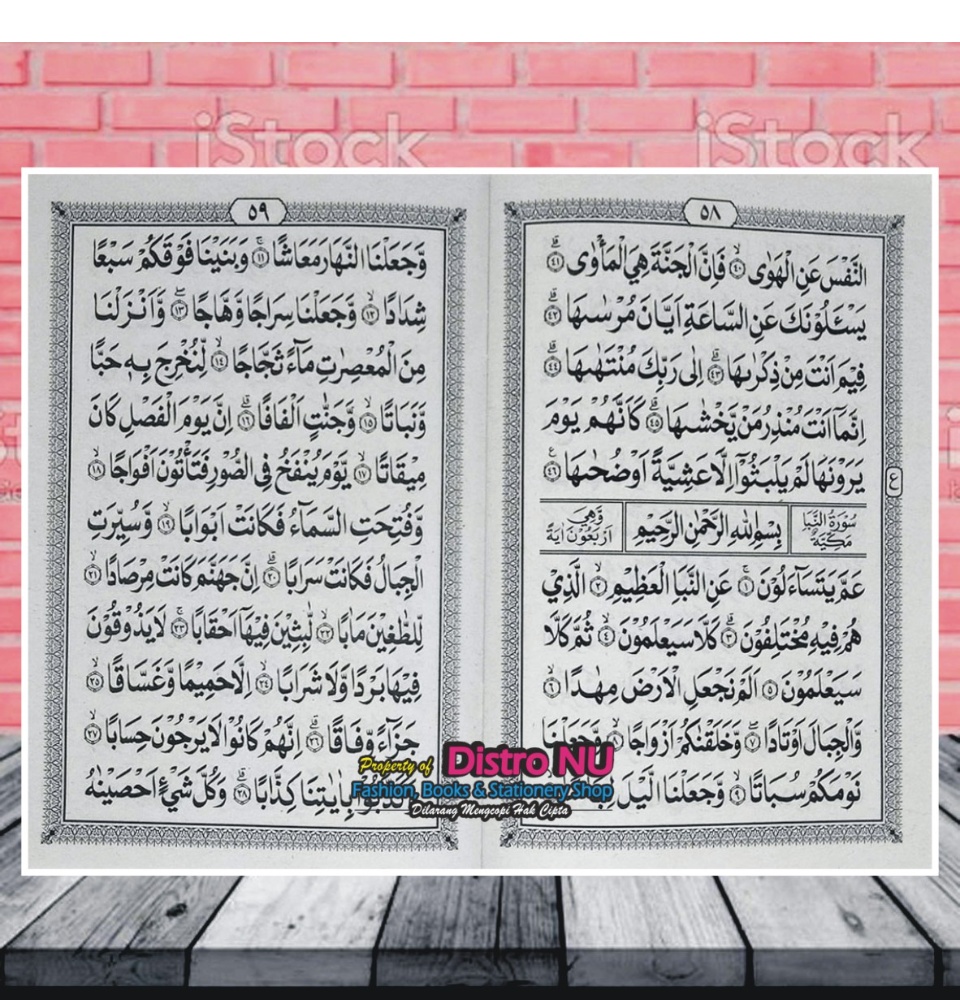 iStock
iStock
٥٨
النَّفْسَ عَنِ الْهَوٰى ۙ ٤٠ فَاِنَّ الْجَنَّةَ هِيَ الْمَأْوٰى ۗ ٤١
يَسْـَٔلُوْنَكَ عَنِ السَّاعَةِ اَيَّانَ مُرْسٰىهَا ۗ ٤٢
فِيْمَ اَنْتَ مِنْ ذِكْرٰىهَا ۗ ٤٣ اِلٰى رَبِّكَ مُنْتَهٰىهَا ۗ ٤٤
اِنَّمَآ اَنْتَ مُنْذِرُ مَنْ يَّخْشٰىهَا ۗ ٤٥ كَاَنَّهُمْ يَوْمَ
يَرَوْنَهَا لَمْ يَلْبَثُوْٓا اِلَّا عَشِيَّةً اَوْ ضُحٰىهَا ٤٦
ع
سُوْرَةُ النَّبَا مَكِّيَّةٌ
بِسْمِ اللّٰهِ الرَّحْمٰنِ الرَّحِيْمِ
وَهِيَ اَرْبَعُوْنَ اٰيَةً
عَمَّ يَتَسَآءَلُوْنَ ۚ ١ عَنِ النَّبَاِ الْعَظِيْمِ ۙ ٢ الَّذِيْ
هُمْ فِيْهِ مُخْتَلِفُوْنَ ۗ ٣ كَلَّا سَيَعْلَمُوْنَ ۙ ٤ ثُمَّ كَلَّا
سَيَعْلَمُوْنَ ٥ اَلَمْ نَجْعَلِ الْاَرْضَ مِهٰدًا ۙ ٦
وَّالْجِبَالَ اَوْتَادًا ۖ ٧ وَّخَلَقْنٰكُمْ اَزْوَاجًا ۙ وَّجَعَلْنَا
نَوْمَكُمْ سُبَاتًا ۙ ٩ وَّجَعَلْنَا الَّيْلَ
٥٩
وَّجَعَلْنَا النَّهَارَ مَعَاشًا ۚ ١١ وَبَنَيْنَا فَوْقَكُمْ سَبْعًا
شِدَادًا ۙ ١٢ وَّجَعَلْنَا سِرَاجًا وَّهَّاجًا ۖ ١٣ وَّاَنْزَلْنَا
مِنَ الْمُعْصِرٰتِ مَآءً ثَجَّاجًا ۙ ١٤ لِّنُخْرِجَ بِهٖ حَبًّا
وَّنَبَاتًا ۙ ١٥ وَّجَنّٰتٍ اَلْفَافًا ۗ ١٦ اِنَّ يَوْمَ الْفَصْلِ كَانَ
مِيْقَاتًا ۙ ١٧ يَّوْمَ يُنْفَخُ فِى الصُّوْرِ فَتَأْتُوْنَ اَفْوَاجًا ۙ ١٨
وَّفُتِحَتِ السَّمَآءُ فَكَانَتْ اَبْوَابًا ۙ ١٩ وَّسُيِّرَتِ
الْجِبَالُ فَكَانَتْ سَرَابًا ۗ ٢٠ اِنَّ جَهَنَّمَ كَانَتْ مِرْصَادًا ۙ ٢١
لِّلطّٰغِيْنَ مَاٰبًا ۙ ٢٢ لّٰبِثِيْنَ فِيْهَآ اَحْقَابًا ۚ ٢٣ لَا يَذُوْقُوْنَ
فِيْهَا بَرْدًا وَّلَا شَرَابًا ۙ ٢٤ اِلَّا حَمِيْمًا وَّغَسَّاقًا ۙ ٢٥
جَزَآءً وِّفَاقًا ۗ ٢٦ اِنَّهُمْ كَانُوْا لَا يَرْجُوْنَ حِسَابًا ۙ ٢٧
بِاٰيٰتِنَا كِذَّابًا ۗ ٢٨ وَكُلَّ شَيْءٍ اَحْصَيْنٰهُ
Property of Distro NU
Fashion, Books & Stationery Shop
Dilarang Mengcopi Hak Cipta